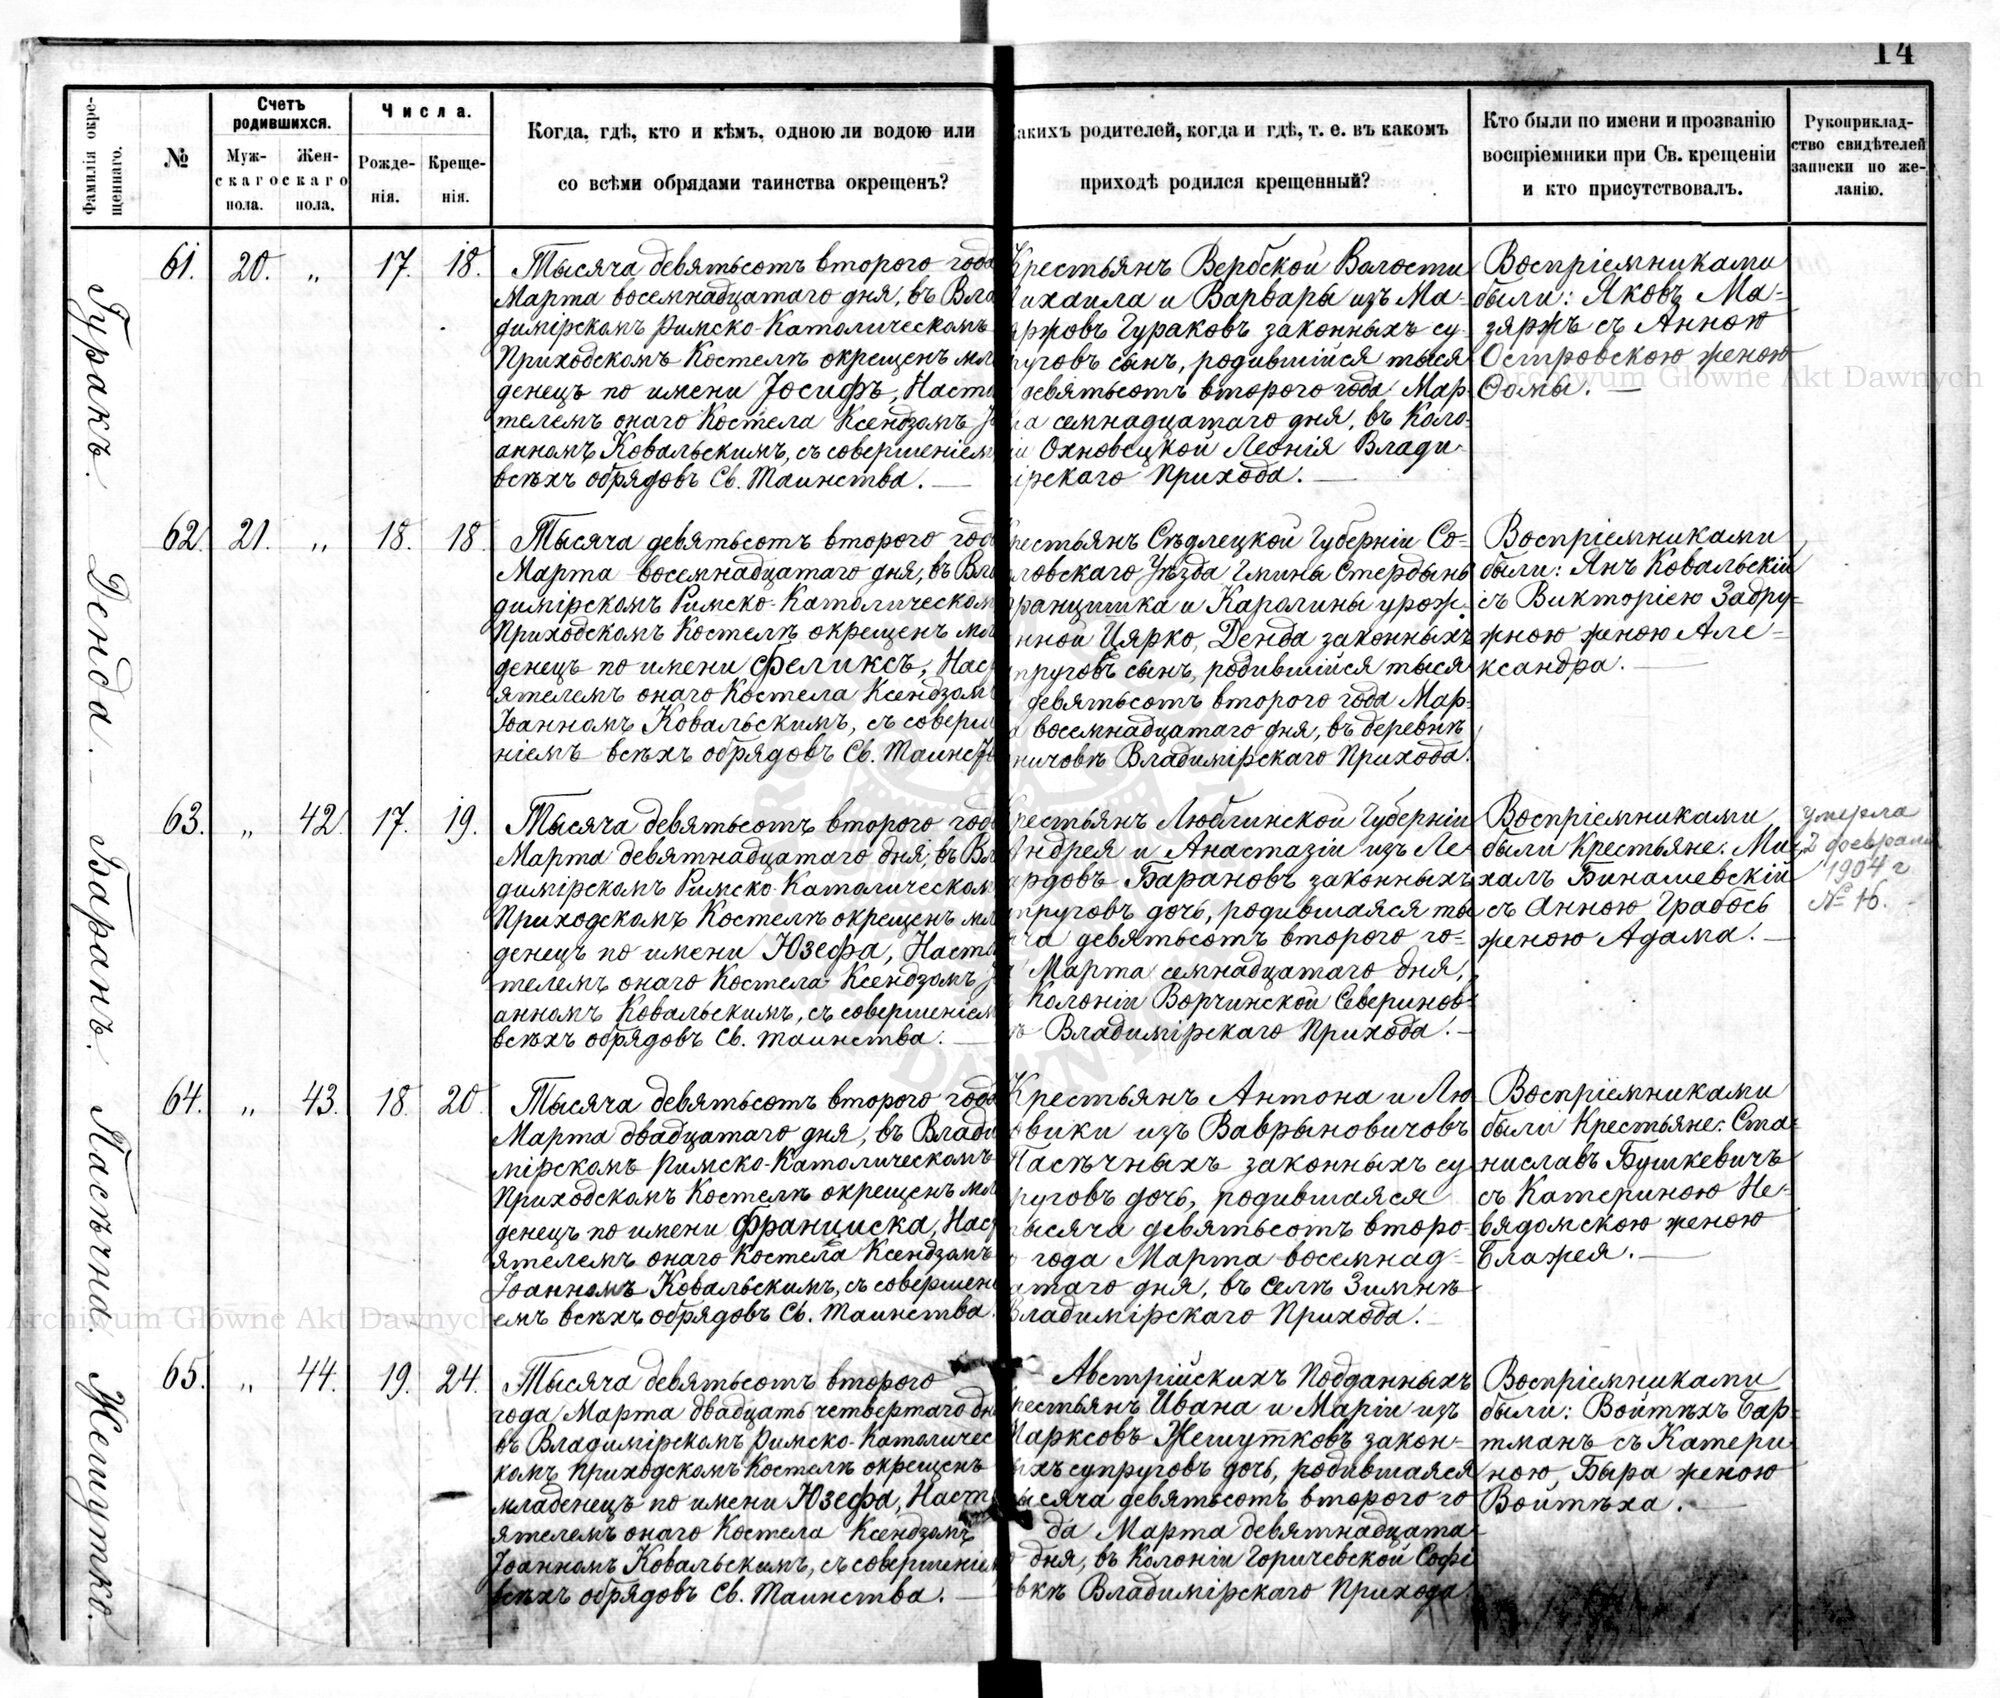 14
Фамилія окре-
щеннаго.
№
Счетъ
родившихся.
Муж-
скаго
пола.
Жен-
скаго
пола.
Числа.
Рожде-
нія.
Креще-
нія.
Когда, гдѣ, кто и кѣмъ, одною ли водою или
со всѣми обрядами таинства окрещенъ?
какихъ родителей, когда и гдѣ, т. е. въ какомъ
приходѣ родился крещенный?
Кто были по имени и прозванію
воспріемники при Св. крещеніи
и кто присутствовалъ.
Рукоприклад-
ство свидѣтелей
записки по же-
ланію.
Гуракъ.
61. 20. „ 17. 18.
Тысяча девятьсотъ второго года
Марта восемнадцатаго дня, въ Вла
димірскомъ Римско-Католическомъ
Приходскомъ Костелѣ окрещенъ мла
денецъ по имени Іосифъ, Насто
телемъ онаго Костела Ксендзомъ І
анномъ Ковальскимъ, съ совершеніем
всѣхъ обрядовъ Св. Таинства. —
Крестьянъ Вербской Волости
ихаила и Варвары изъ Ма-
яржовъ Гураковъ законныхъ су-
руговъ сынъ, родившійся тыся
девятьсотъ второго года Мар-
та семнадцатаго дня, въ Коло-
іи Охновецкой Леонія Влади-
ірскаго Прихода. —
Воспріемниками
были: Яковъ Ма-
зяржъ съ Анною
Островскою женою
Ѳомы. —
Денда. —
62. 21. „ 18. 18.
Тысяча девятьсотъ второго года
Марта восемнадцатаго дня, въ Вла
димірскомъ Римско-Католическом
Приходскомъ Костелѣ окрещенъ мла
денецъ по имени Феликсъ, Наст
ятелемъ онаго Костела Ксендзомъ
Іоанномъ Ковальскимъ, съ соверше
ніемъ всѣхъ обрядовъ Св. Таинства
рестьянъ Сѣдлецкой Губерніи Со-
ловскаго Уѣзда Гмины Стердынь
Францишка и Каролины урож-
нной Цярко, Денда законныхъ
пруговъ сынъ, родившійся тыся
девятьсотъ второго года Мар-
а восемнадцатаго дня, въ деревнѣ
ничовкѣ Владимірскаго Прихода.
Воспріемниками
были: Янъ Ковальскій
съ Викторіею Задру-
жною женою Але-
ксандра. —
Баранъ.
63. „ 42. 17. 19.
Тысяча девятьсотъ второго года
Марта девятнадцатаго дня, въ Вла
димірскомъ Римско-Католическом
Приходскомъ Костелѣ окрещенъ мла
денецъ по имени Юзефа, Насто
телемъ онаго Костела Ксендзомъ І
анномъ Ковальскимъ, съ совершеніем
всѣхъ обрядовъ Св. таинства. —
рестьянъ Люблинской Губерніи
Андрея и Анастазіи изъ Ле-
ардовъ Барановъ законныхъ
пруговъ дочь, родившаяся ты
яча девятьсотъ второго го-
Марта семнадцатаго дня,
Колоніи Ворчинской Севериновъ
Владимірскаго Прихода. —
Воспріемниками
были Крестьяне: Ми-
халъ Бинашевскій
съ Анною Грабось
женою Адама. —
умерла
2 февраля
1904 г
№ 16.
Пасѣчна.
64. „ 43. 18. 20.
Тысяча девятьсотъ второго года
Марта двадцатаго дня, въ Влади
мірскомъ Римско-Католическомъ
Приходскомъ Костелѣ окрещенъ мла
денецъ по имени Франциска, Наст
ятелемъ онаго Костела Ксендзомъ
Іоанномъ Ковальскимъ, съ совершені
емъ всѣхъ обрядовъ Св. Таинства.
Крестьянъ Антона и Лю
овики изъ Ваврыновичовъ
Пасѣчныхъ законныхъ су
руговъ дочь, родившаяся
тысяча девятьсотъ второ-
года Марта восемнад-
атаго дня, въ селѣ Зимнѣ
Владимірскаго Прихода. —
Воспріемниками
были Крестьяне: Ста-
ниславъ Бушкевичъ
съ Катериною Не-
вядомскою женою
Блажея. —
Жешутко.
65. „ 44. 19. 24.
Тысяча девятьсотъ второго
года Марта двадцать четвертаго дня
въ Владимірскомъ Римско-Католичес
комъ Приходскомъ Костелѣ окрещенъ
младенецъ по имени Юзефа, Наст
ятелемъ онаго Костела Ксендзомъ
Іоанномъ Ковальскимъ, съ совершеніем
всѣхъ обрядовъ Св. Таинства. —
Австрійскихъ Подданныхъ
рестьянъ Ивана и Маріи изъ
Марксовъ Жешутковъ закон-
ыхъ супруговъ дочь, родившаяся
тысяча девятьсотъ второго го
да Марта девятнадцата-
дня, въ Колоніи Горичевской Софі
овкѣ Владимірскаго Прихода.
Воспріемниками
были: Войтѣхъ Бар-
тманъ съ Катери
ною Быра женою
Войтѣха. —
Archiwum Główne Akt Dawnych
Archiwum Główne Akt Dawnych